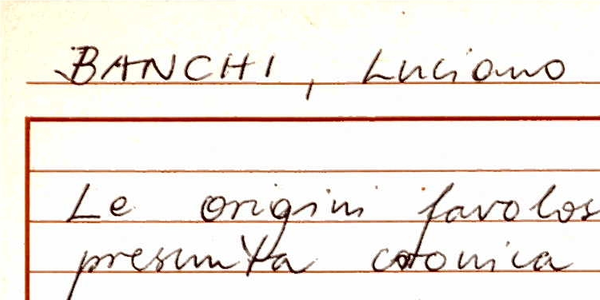 BANCHI, Luciano
Le origini favolos
presunta cronica